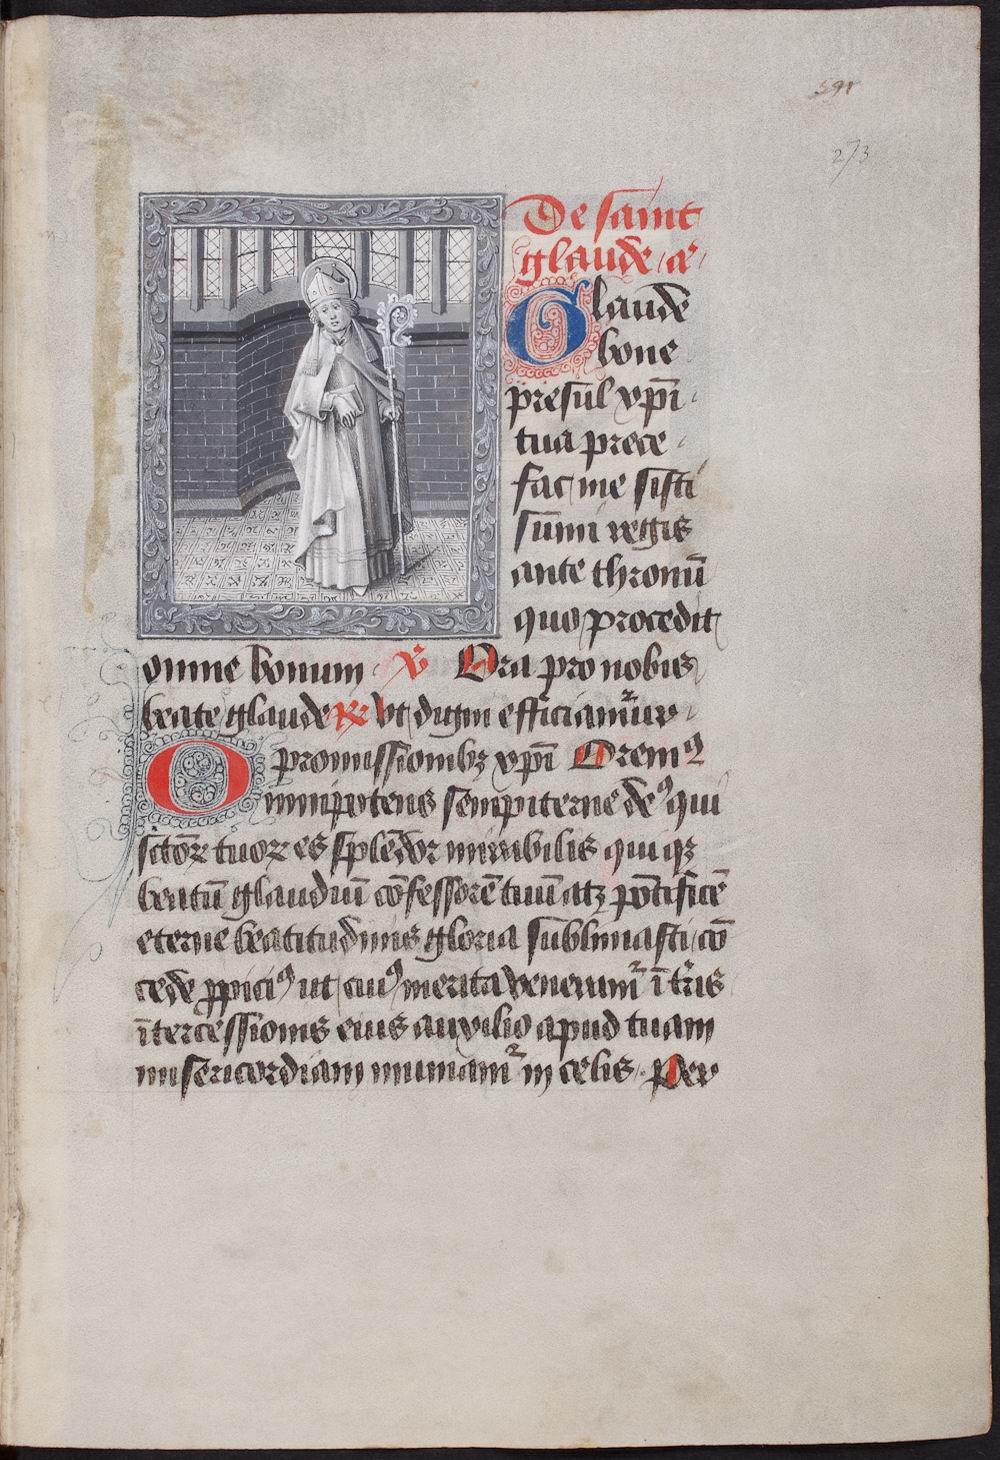 591
273
De saint
glaude . ā
Glaude
bone
presul xp̄i
tua prece
fac me sisti
sum̄i regis
ante thronū
quo procedit
omne bonum . V Ora pro nobis
beate glaude R Vt digni efficiamur
promissionibꝫ xp̄i Oremꝰ
Omnipotens sempiterne deꝰ qui
sctōꝝ tuoꝝ es splēdor mirabilis qui qꝫ
beatū glaudiū cōfessorē tuū atqꝫ pōtificē
eterne beatitudinis gloria sublimasti cō
cede ꝓpiciꝰ ut cuiꝰ merita veneramur ī tris
ītercessionis eius auxilio apud tuam
misericordiam muniamur in celis . Per